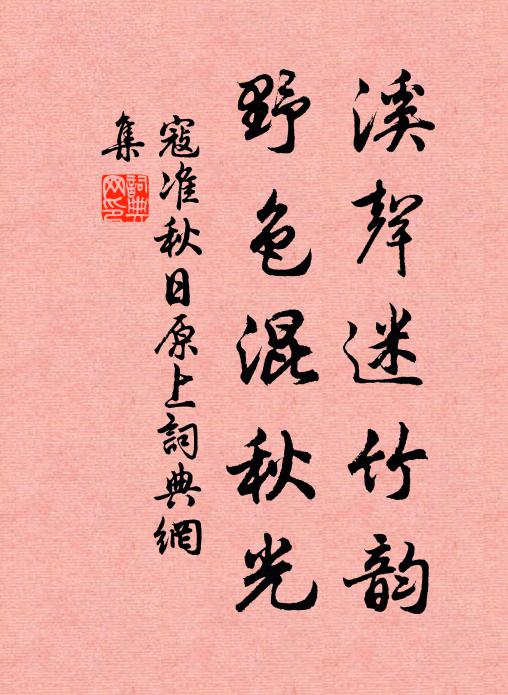 溪聲迷竹韵
野色混秋光
寇准秋日原上詞典網
集
詞典
网印